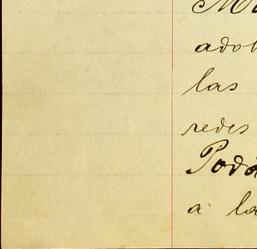 Ma
adob
las
redes
Poda
a la